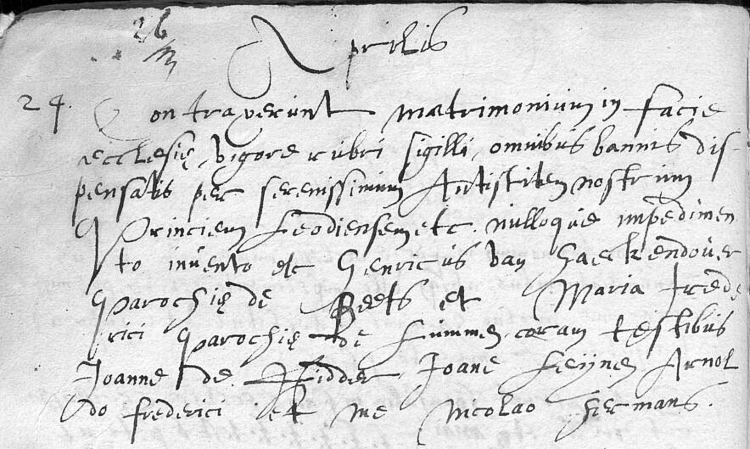 26
Aprilis
24. Contraxerunt matrimonium in facie
ecclesię, vigore rubri sigilli, omnibus bannis dis-
pensatis per serenissimum Antistitem nostrum
Principem Leodiensem etc. nulloque impedimen
to invento etc Henricus van Haeckendover
parochię de Beets et Maria Frede
rici parochię de Lummen coram testibus
Joanne de Ridder Joane Leynen Arnol
do frederici et me Nicolao Hermans.